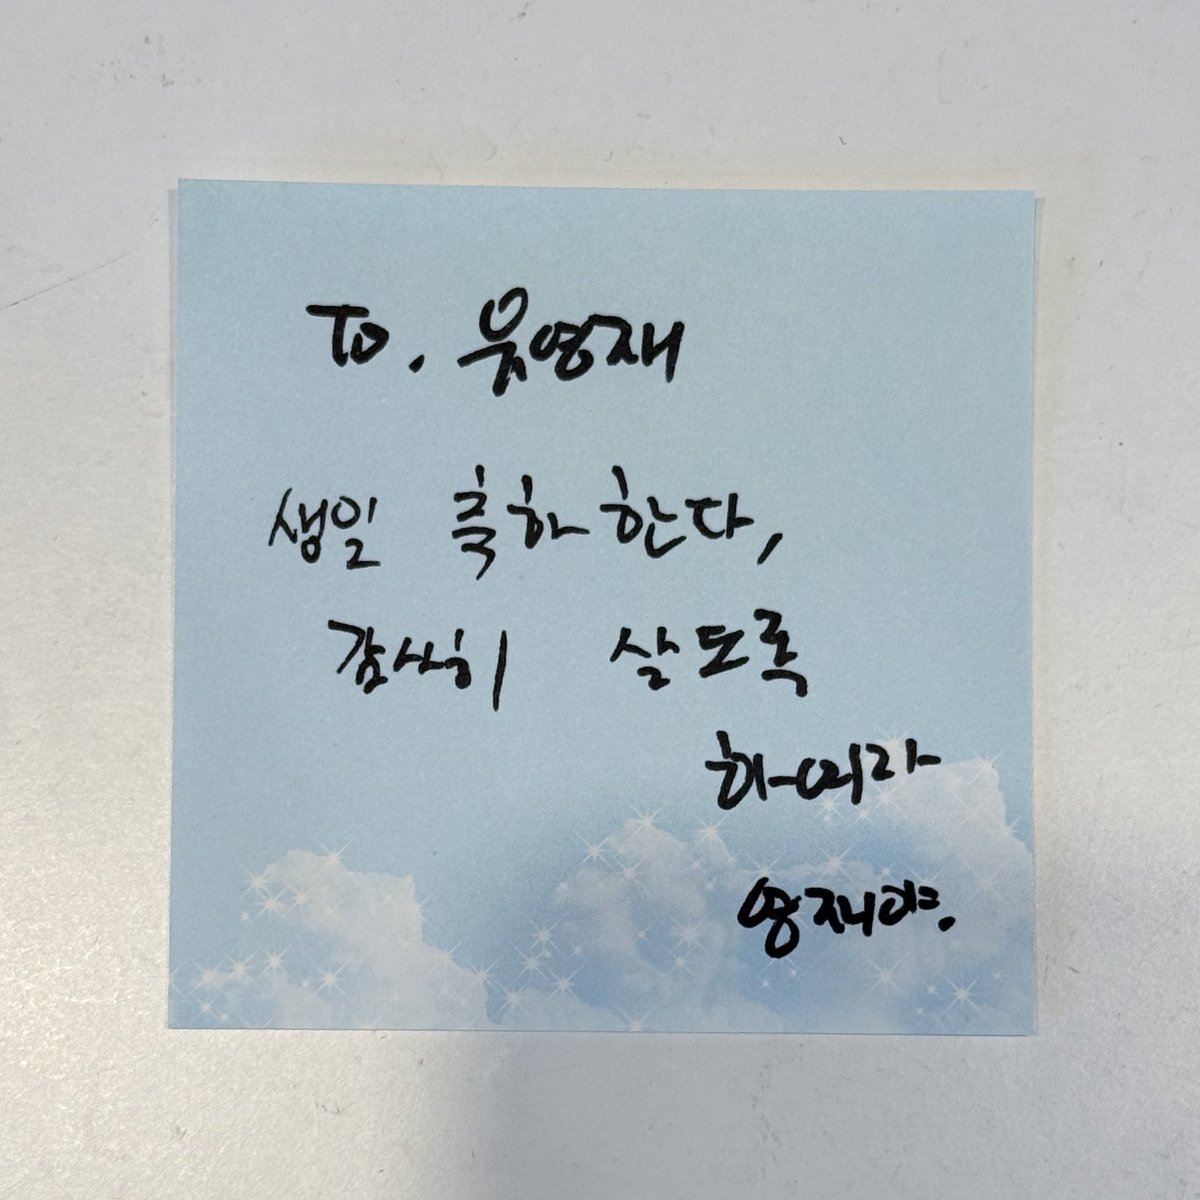 To. 유영재
생일 축하한다,
감사히 살도록
하여라
영재야.